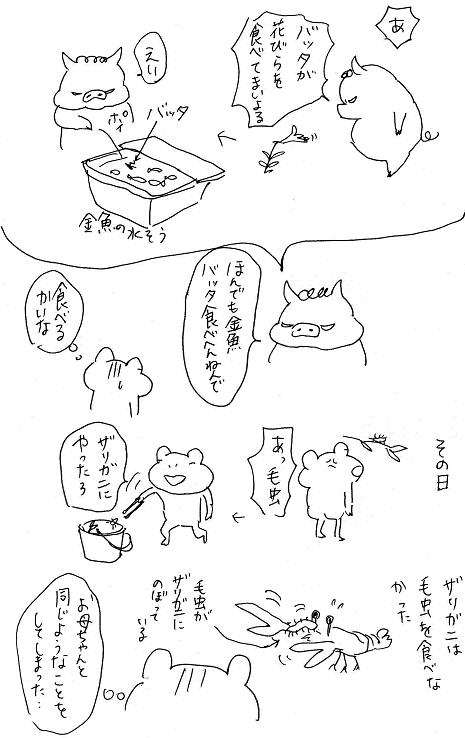 あ
バッタが
花びらを
食べてまいよる
えい
ポイ
バッタ
金魚の水そう
ほんでも金魚
バッタ食べへんねんで
食べる
かいな
その日
あっ毛虫
ザリガニに
やったろ
ザリガニは
毛虫を食べな
かった
毛虫が
ザリガニに
のぼって
いる
お母ちゃんと
同じようなことを
してしまった…